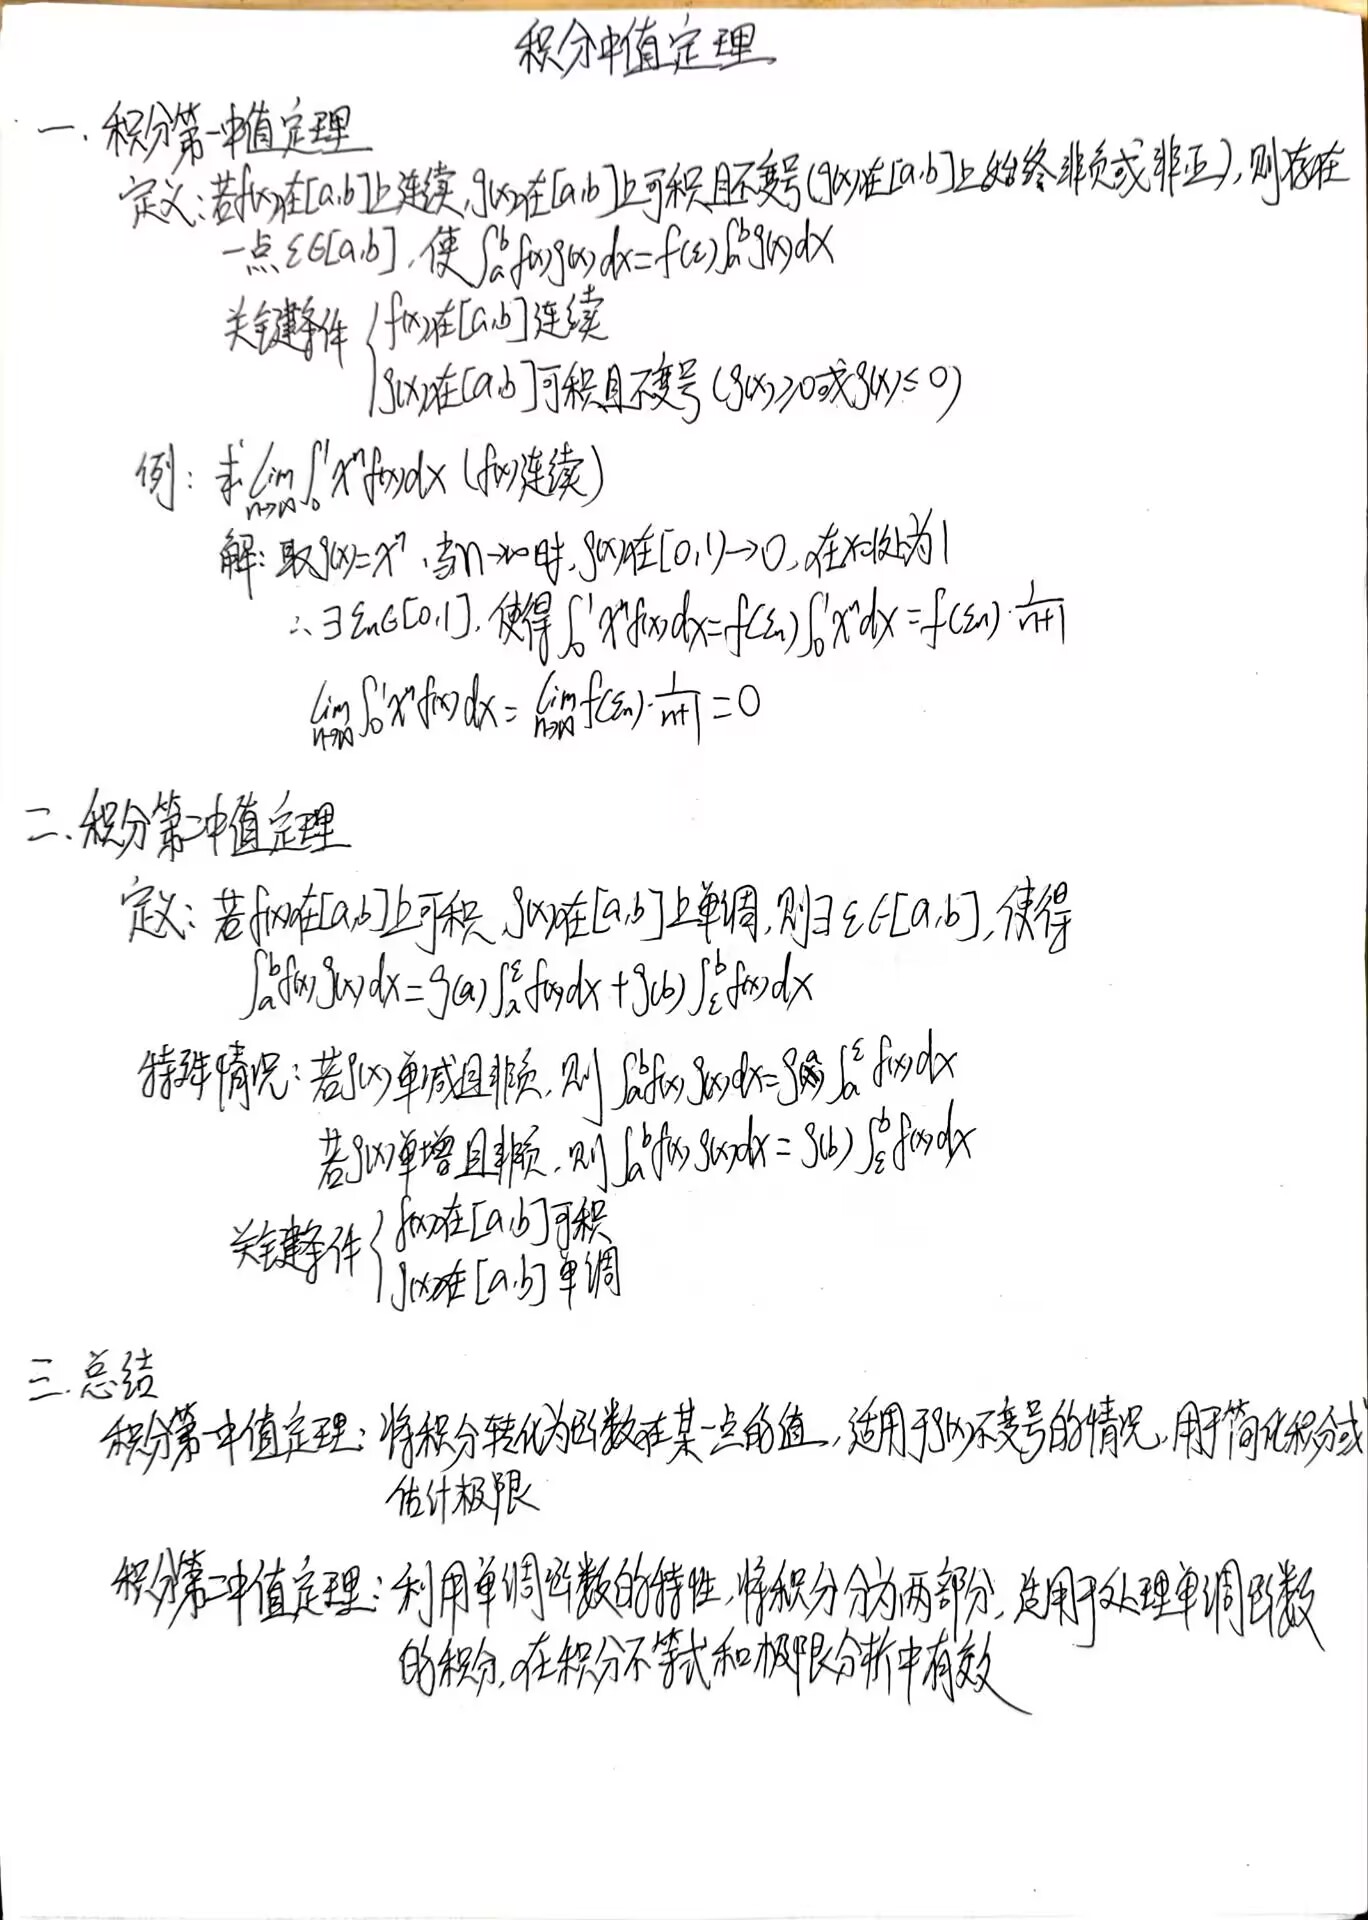 积分中值定理
一. 积分第一中值定理
定义: 若f(x)在[a,b]上连续, g(x)在[a,b]上可积且不变号(g(x)在[a,b]上始终非负或非正), 则存在
一点ξ∈[a,b], 使∫ₐᵇf(x)g(x)dx=f(ξ)∫ₐᵇg(x)dx
关键条件 { f(x)在[a,b]连续
g(x)在[a,b]可积且不变号(g(x)≥0或g(x)≤0)
例: 求lim n→∞ ∫₀¹xⁿf(x)dx (f(x)连续)
解: 取g(x)=xⁿ, 当n→∞时, g(x)在[0,1)→0, 在x=1处为1
∴∃ξₙ∈[0,1], 使得∫₀¹xⁿf(x)dx=f(ξₙ)∫₀¹xⁿdx=f(ξₙ)·1/(n+1)
lim n→∞ ∫₀¹xⁿf(x)dx=lim n→∞ f(ξₙ)·1/(n+1)=0
二. 积分第二中值定理
定义: 若f(x)在[a,b]上可积, g(x)在[a,b]上单调, 则∃ξ∈[a,b], 使得
∫ₐᵇf(x)g(x)dx=g(a)∫_a^ξ f(x)dx+g(b)∫_ξ^b f(x)dx
特殊情况: 若g(x)单减且非负, 则∫ₐᵇf(x)g(x)dx=g(a)∫_a^ξ f(x)dx
若g(x)单增且非负, 则∫ₐᵇf(x)g(x)dx=g(b)∫_ξ^b f(x)dx
关键条件 { f(x)在[a,b]可积
g(x)在[a,b]单调
三. 总结
积分第一中值定理: 将积分转化为函数在某一点的值, 适用于g(x)不变号的情况, 用于简化积分或
估计极限
积分第二中值定理: 利用单调函数的特性, 将积分分为两部分, 适用于处理单调函数
的积分, 在积分不等式和极限分析中有效